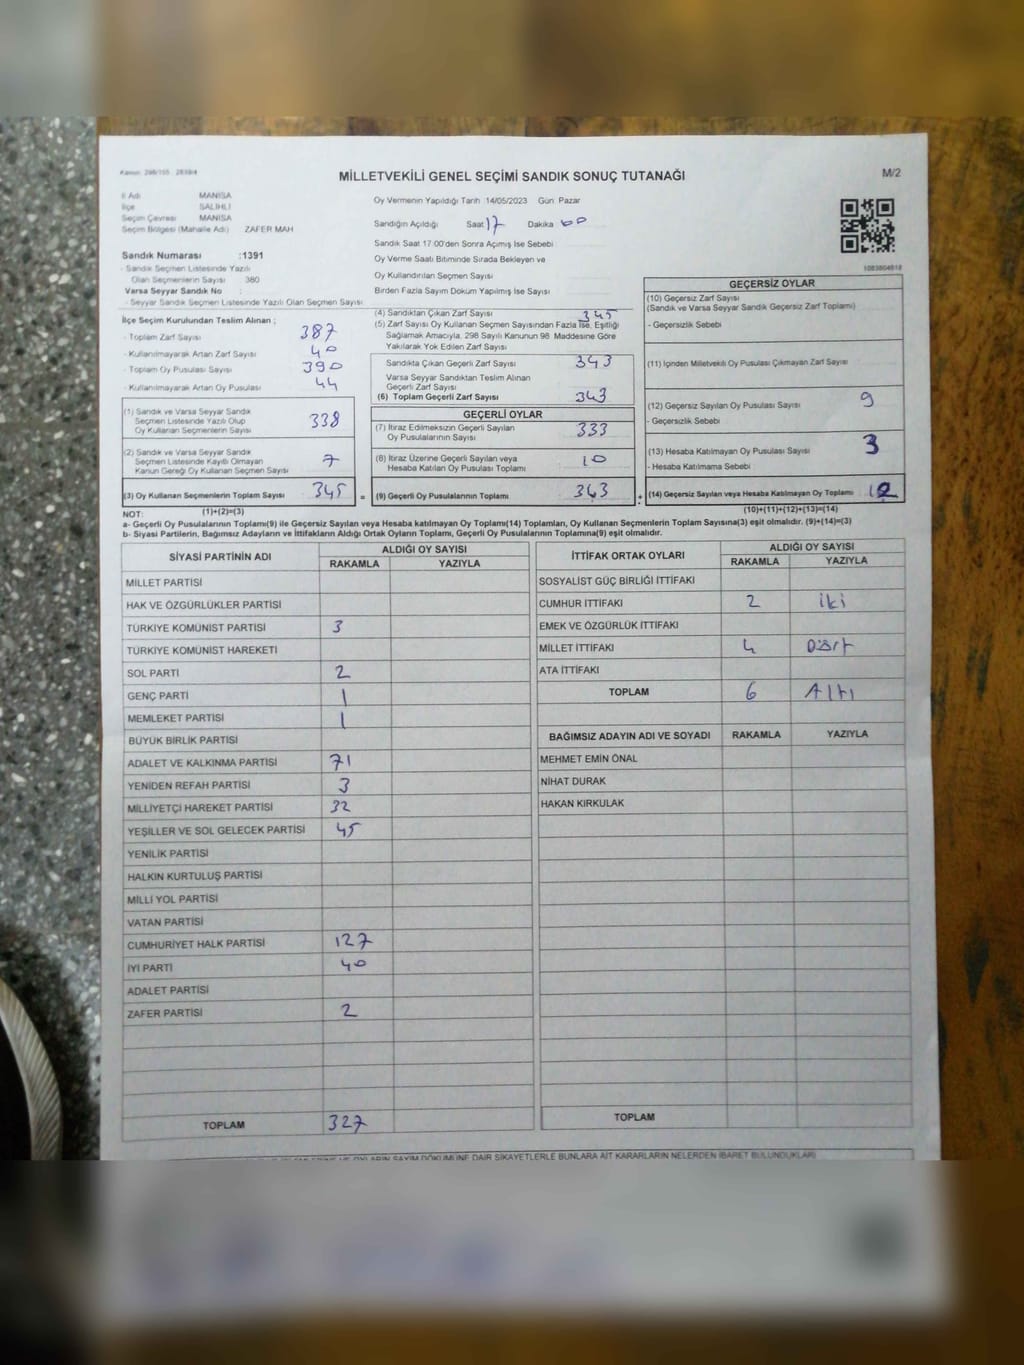 Kanun: 298/155 2839/4
MİLLETVEKİLİ GENEL SEÇİMİ SANDIK SONUÇ TUTANAĞI
M/2
İl Adı MANİSA
İlçe SALİHLİ
Seçim Çevresi MANİSA
Seçim Bölgesi (Mahalle Adı) ZAFER MAH
Sandık Numarası :1391
- Sandık Seçmen Listesinde Yazılı
Olan Seçmenlerin Sayısı : 380
Varsa Seyyar Sandık No :
- Seyyar Sandık Seçmen Listesinde Yazılı Olan Seçmen Sayısı
Oy Vermenin Yapıldığı Tarih 14/05/2023 Gün Pazar
Sandığın Açıldığı Saat 17 Dakika 00
Sandık Saat 17:00'den Sonra Açılmış İse Sebebi
Oy Verme Saati Bitiminde Sırada Bekleyen ve
Oy Kullandırılan Seçmen Sayısı
Birden Fazla Sayım Döküm Yapılmış İse Sayısı
İlçe Seçim Kurulundan Teslim Alınan ;
- Toplam Zarf Sayısı 387
- Kullanılmayarak Artan Zarf Sayısı 40
- Toplam Oy Pusulası Sayısı 390
- Kullanılmayarak Artan Oy Pusulası 44
(1) Sandık ve Varsa Seyyar Sandık
Seçmen Listesinde Yazılı Olup
Oy Kullanan Seçmenlerin Sayısı 338
(2) Sandık ve Varsa Seyyar Sandık
Seçmen Listesinde Kayıtlı Olmayan
Kanun Gereği Oy Kullanan Seçmen Sayısı 7
(3) Oy Kullanan Seçmenlerin Toplam Sayısı 345
(4) Sandıktan Çıkan Zarf Sayısı 345
(5) Zarf Sayısı Oy Kullanan Seçmen Sayısından Fazla İse, Eşitliği
Sağlamak Amacıyla, 298 Sayılı Kanunun 98. Maddesine Göre
Yakılarak Yok Edilen Zarf Sayısı
Sandıkta Çıkan Geçerli Zarf Sayısı 343
Varsa Seyyar Sandıktan Teslim Alınan
Geçerli Zarf Sayısı
(6) Toplam Geçerli Zarf Sayısı 343
GEÇERLİ OYLAR
(7) İtiraz Edilmeksizin Geçerli Sayılan
Oy Pusulalarının Sayısı 333
(8) İtiraz Üzerine Geçerli Sayılan veya
Hesaba Katılan Oy Pusulası Toplamı 10
= (9) Geçerli Oy Pusulalarının Toplamı 343
1083804818
GEÇERSİZ OYLAR
(10) Geçersiz Zarf Sayısı
(Sandık ve Varsa Seyyar Sandık Geçersiz Zarf Toplamı)
- Geçersizlik Sebebi
(11) İçinden Milletvekili Oy Pusulası Çıkmayan Zarf Sayısı
(12) Geçersiz Sayılan Oy Pusulası Sayısı 9
- Geçersizlik Sebebi
(13) Hesaba Katılmayan Oy Pusulası Sayısı 3
- Hesaba Katılmama Sebebi
+ (14) Geçersiz Sayılan veya Hesaba Katılmayan Oy Toplamı 12
NOT: (1)+(2)=(3)
(10)+(11)+(12)+(13)=(14)
a- Geçerli Oy Pusulalarının Toplamı(9) ile Geçersiz Sayılan veya Hesaba katılmayan Oy Toplamı(14) Toplamları, Oy Kullanan Seçmenlerin Toplam Sayısına(3) eşit olmalıdır. (9)+(14)=(3)
b- Siyasi Partilerin, Bağımsız Adayların ve İttifakların Aldığı Ortak Oyların Toplamı, Geçerli Oy Pusulalarının Toplamına(9) eşit olmalıdır.
SİYASİ PARTİNİN ADI
ALDIĞI OY SAYISI
RAKAMLA YAZIYLA
MİLLET PARTİSİ
HAK VE ÖZGÜRLÜKLER PARTİSİ
TÜRKİYE KOMÜNİST PARTİSİ 3
TÜRKİYE KOMÜNİST HAREKETİ
SOL PARTİ 2
GENÇ PARTİ 1
MEMLEKET PARTİSİ 1
BÜYÜK BİRLİK PARTİSİ
ADALET VE KALKINMA PARTİSİ 71
YENİDEN REFAH PARTİSİ 3
MİLLİYETÇİ HAREKET PARTİSİ 32
YEŞİLLER VE SOL GELECEK PARTİSİ 45
YENİLİK PARTİSİ
HALKIN KURTULUŞ PARTİSİ
MİLLİ YOL PARTİSİ
VATAN PARTİSİ
CUMHURİYET HALK PARTİSİ 127
İYİ PARTİ 40
ADALET PARTİSİ
ZAFER PARTİSİ 2
TOPLAM 327
İTTİFAK ORTAK OYLARI
ALDIĞI OY SAYISI
RAKAMLA YAZIYLA
SOSYALİST GÜÇ BİRLİĞİ İTTİFAKI
CUMHUR İTTİFAKI 2 iki
EMEK VE ÖZGÜRLÜK İTTİFAKI
MİLLET İTTİFAKI 4 Dört
ATA İTTİFAKI
TOPLAM 6 Altı
BAĞIMSIZ ADAYIN ADI VE SOYADI RAKAMLA YAZIYLA
MEHMET EMİN ÖNAL
NİHAT DURAK
HAKAN KIRKULAK
TOPLAM
OYLARIN SAYIM DÖKÜMÜNE DAİR ŞİKAYETLERLE BUNLARA AİT KARARLARIN NELERDEN İBARET BULUNDUKLARI